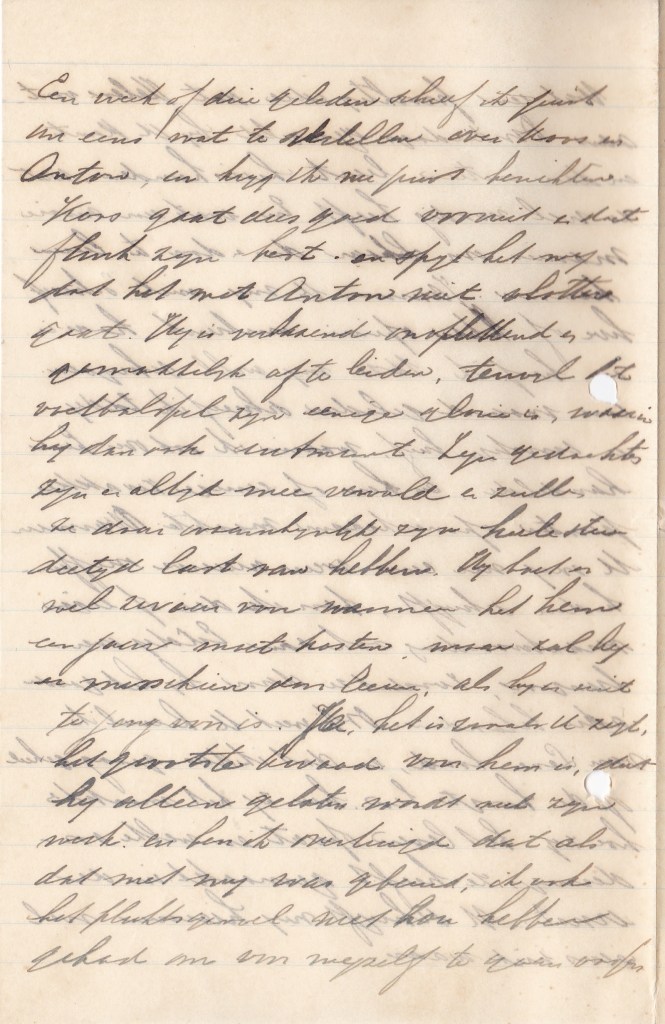 Een week of drie geleden schreef ik juist
om eens wat te vertellen over Koos en
Anton, en krijg ik nu juist berichten
Koos gaat dus goed vooruit en doet
flink zyn best. en spyt het my
dat het met Anton niet vlotter
gaat. Hy is verbazend onoplettend en
gemakkelyk af te leiden, terwyl het
voetbalspel zyn eenige glorie is, waarin
hy dan ook uitmunt. Zyn gedachten
zyn er altyd mee vervuld en zullen
ze daar waarschynlyk zyn heele stu
dietyd last van hebben. Hy boet er
wel zwaar voor wanneer het hem
een jaar moet kosten, maar zal hy
er misschien door leeren, als hy er niet
te jong voor is. Ja, het is zooals U zegt,
het grootste kwaad voor hem is, dat
hy alleen gelaten wordt met zyn
werk. en ben ik overtuigd dat als
dat met my was gebeurd, ik ook
het plichtsgevoel niet zou hebben
gehad om van myzelf te gaan